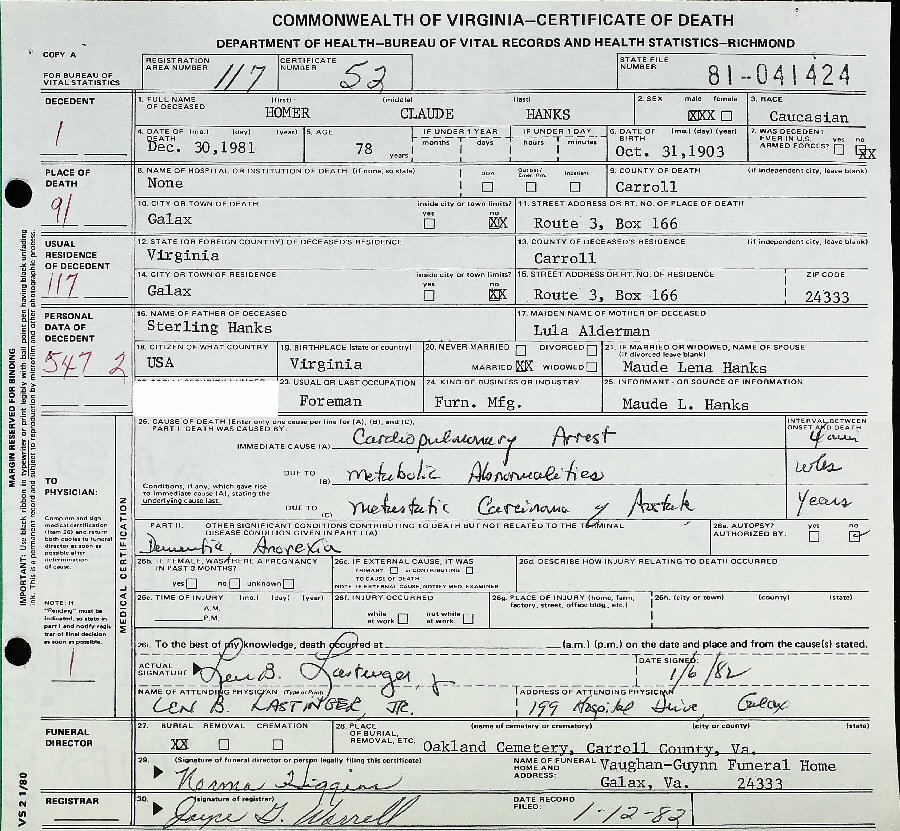 COMMONWEALTH OF VIRGINIA—CERTIFICATE OF DEATH
DEPARTMENT OF HEALTH—BUREAU OF VITAL RECORDS AND HEALTH STATISTICS—RICHMOND
COPY A
FOR BUREAU OF VITAL STATISTICS
REGISTRATION AREA NUMBER 117
CERTIFICATE NUMBER 52
STATE FILE NUMBER 81-041424
DECEDENT
1
1. FULL NAME OF DECEASED (first) (middle) (last)
HOMER CLAUDE HANKS
2. SEX male female
XXX
3. RACE
Caucasian
4. DATE OF DEATH (mo.) (day) (year)
Dec. 30,1981
5. AGE
78 years
IF UNDER 1 YEAR
months days
IF UNDER 1 DAY
hours minutes
6. DATE OF BIRTH (mo.) (day) (year)
Oct. 31,1903
7. WAS DECEDENT EVER IN U.S. ARMED FORCES? yes no
XX
PLACE OF DEATH
91
8. NAME OF HOSPITAL OR INSTITUTION OF DEATH (if none, so state)
None
DOA Outpat/Emer. Rm. Inpatient
9. COUNTY OF DEATH (if independent city, leave blank)
Carroll
10. CITY OR TOWN OF DEATH inside city or town limits? yes no
Galax XX
11. STREET ADDRESS OR RT. NO. OF PLACE OF DEATH
Route 3, Box 166
USUAL RESIDENCE OF DECEDENT
117
12. STATE (OR FOREIGN COUNTRY) OF DECEASED'S RESIDENCE
Virginia
13. COUNTY OF DECEASED'S RESIDENCE (if independent city, leave blank)
Carroll
14. CITY OR TOWN OF RESIDENCE inside city or town limits? yes no
Galax XX
15. STREET ADDRESS OR RT. NO. OF RESIDENCE
Route 3, Box 166
ZIP CODE
24333
PERSONAL DATA OF DECEDENT
547 2
16. NAME OF FATHER OF DECEASED
Sterling Hanks
17. MAIDEN NAME OF MOTHER OF DECEASED
Lula Alderman
18. CITIZEN OF WHAT COUNTRY
USA
19. BIRTHPLACE (state or country)
Virginia
20. NEVER MARRIED DIVORCED
MARRIED XX WIDOWED
21. IF MARRIED OR WIDOWED, NAME OF SPOUSE (if divorced leave blank)
Maude Lena Hanks
23. USUAL OR LAST OCCUPATION
Foreman
24. KIND OF BUSINESS OR INDUSTRY
Furn. Mfg.
25. INFORMANT - OR SOURCE OF INFORMATION
Maude L. Hanks
MARGIN RESERVED FOR BINDING
IMPORTANT: Use black ribbon in typewriter or print legibly with ball point pen having black unfading
ink. This is a permanent record and subject to reproduction by microfilm and other photographic process.
TO PHYSICIAN:
Complete and sign medical certification (item 26) and return both copies to funeral director as soon as possible after determination of cause.
NOTE: If "Pending" must be indicated, so state in part I and notify registrar of final decision as soon as possible.
1
MEDICAL CERTIFICATION
26. CAUSE OF DEATH (Enter only one cause per line for (A), (B), and (C).
PART I. DEATH WAS CAUSED BY:
INTERVAL BETWEEN ONSET AND DEATH
IMMEDIATE CAUSE (A) Cardiopulmonary Arrest
DUE TO (B) Metabolic Abnormalities wks
Conditions, if any, which gave rise to immediate cause (A), stating the underlying cause last.
DUE TO (C) Metastatic Carcinoma of years
PART II. OTHER SIGNIFICANT CONDITIONS CONTRIBUTING TO DEATH BUT NOT RELATED TO THE TERMINAL DISEASE CONDITION GIVEN IN PART I (A)
Dementia, Anorexia
26a. AUTOPSY? AUTHORIZED BY: yes no
26b. IF FEMALE, WAS THERE A PREGNANCY IN PAST 3 MONTHS?
yes no unknown
26c. IF EXTERNAL CAUSE, IT WAS
PRIMARY or CONTRIBUTING
TO CAUSE OF DEATH
NOTE: IF EXTERNAL CAUSE, NOTIFY MED. EXAMINER
26d. DESCRIBE HOW INJURY RELATING TO DEATH OCCURRED
26e. TIME OF INJURY (mo.) (day) (year)
A.M.
P.M.
26f. INJURY OCCURRED
while at work not while at work
26g. PLACE OF INJURY (home, farm, factory, street, office bldg., etc.)
26h. (city or town) (county) (state)
26i. To the best of my knowledge, death occurred at (a.m.) (p.m.) on the date and place and from the cause(s) stated.
ACTUAL SIGNATURE Len B. Lastinger, Jr
DATE SIGNED: 1/6/82
NAME OF ATTENDING PHYSICIAN (Type or Print)
LEN B. LASTINGER, JR.
ADDRESS OF ATTENDING PHYSICIAN
199 Hospital Drive, Galax
FUNERAL DIRECTOR
27. BURIAL REMOVAL CREMATION
XX
28. PLACE OF BURIAL, REMOVAL, ETC. (name of cemetery or crematory) (city or county) (state)
Oakland Cemetery, Carroll County, Va.
29. (Signature of funeral director or person legally filing this certificate)
Norma Higgins
NAME OF FUNERAL HOME AND ADDRESS:
Vaughan-Guynn Funeral Home
Galax, Va. 24333
REGISTRAR
30. (signature of registrar)
Joyce G. Worrell
DATE RECORD FILED: 1-12-82
VS 2 1/80